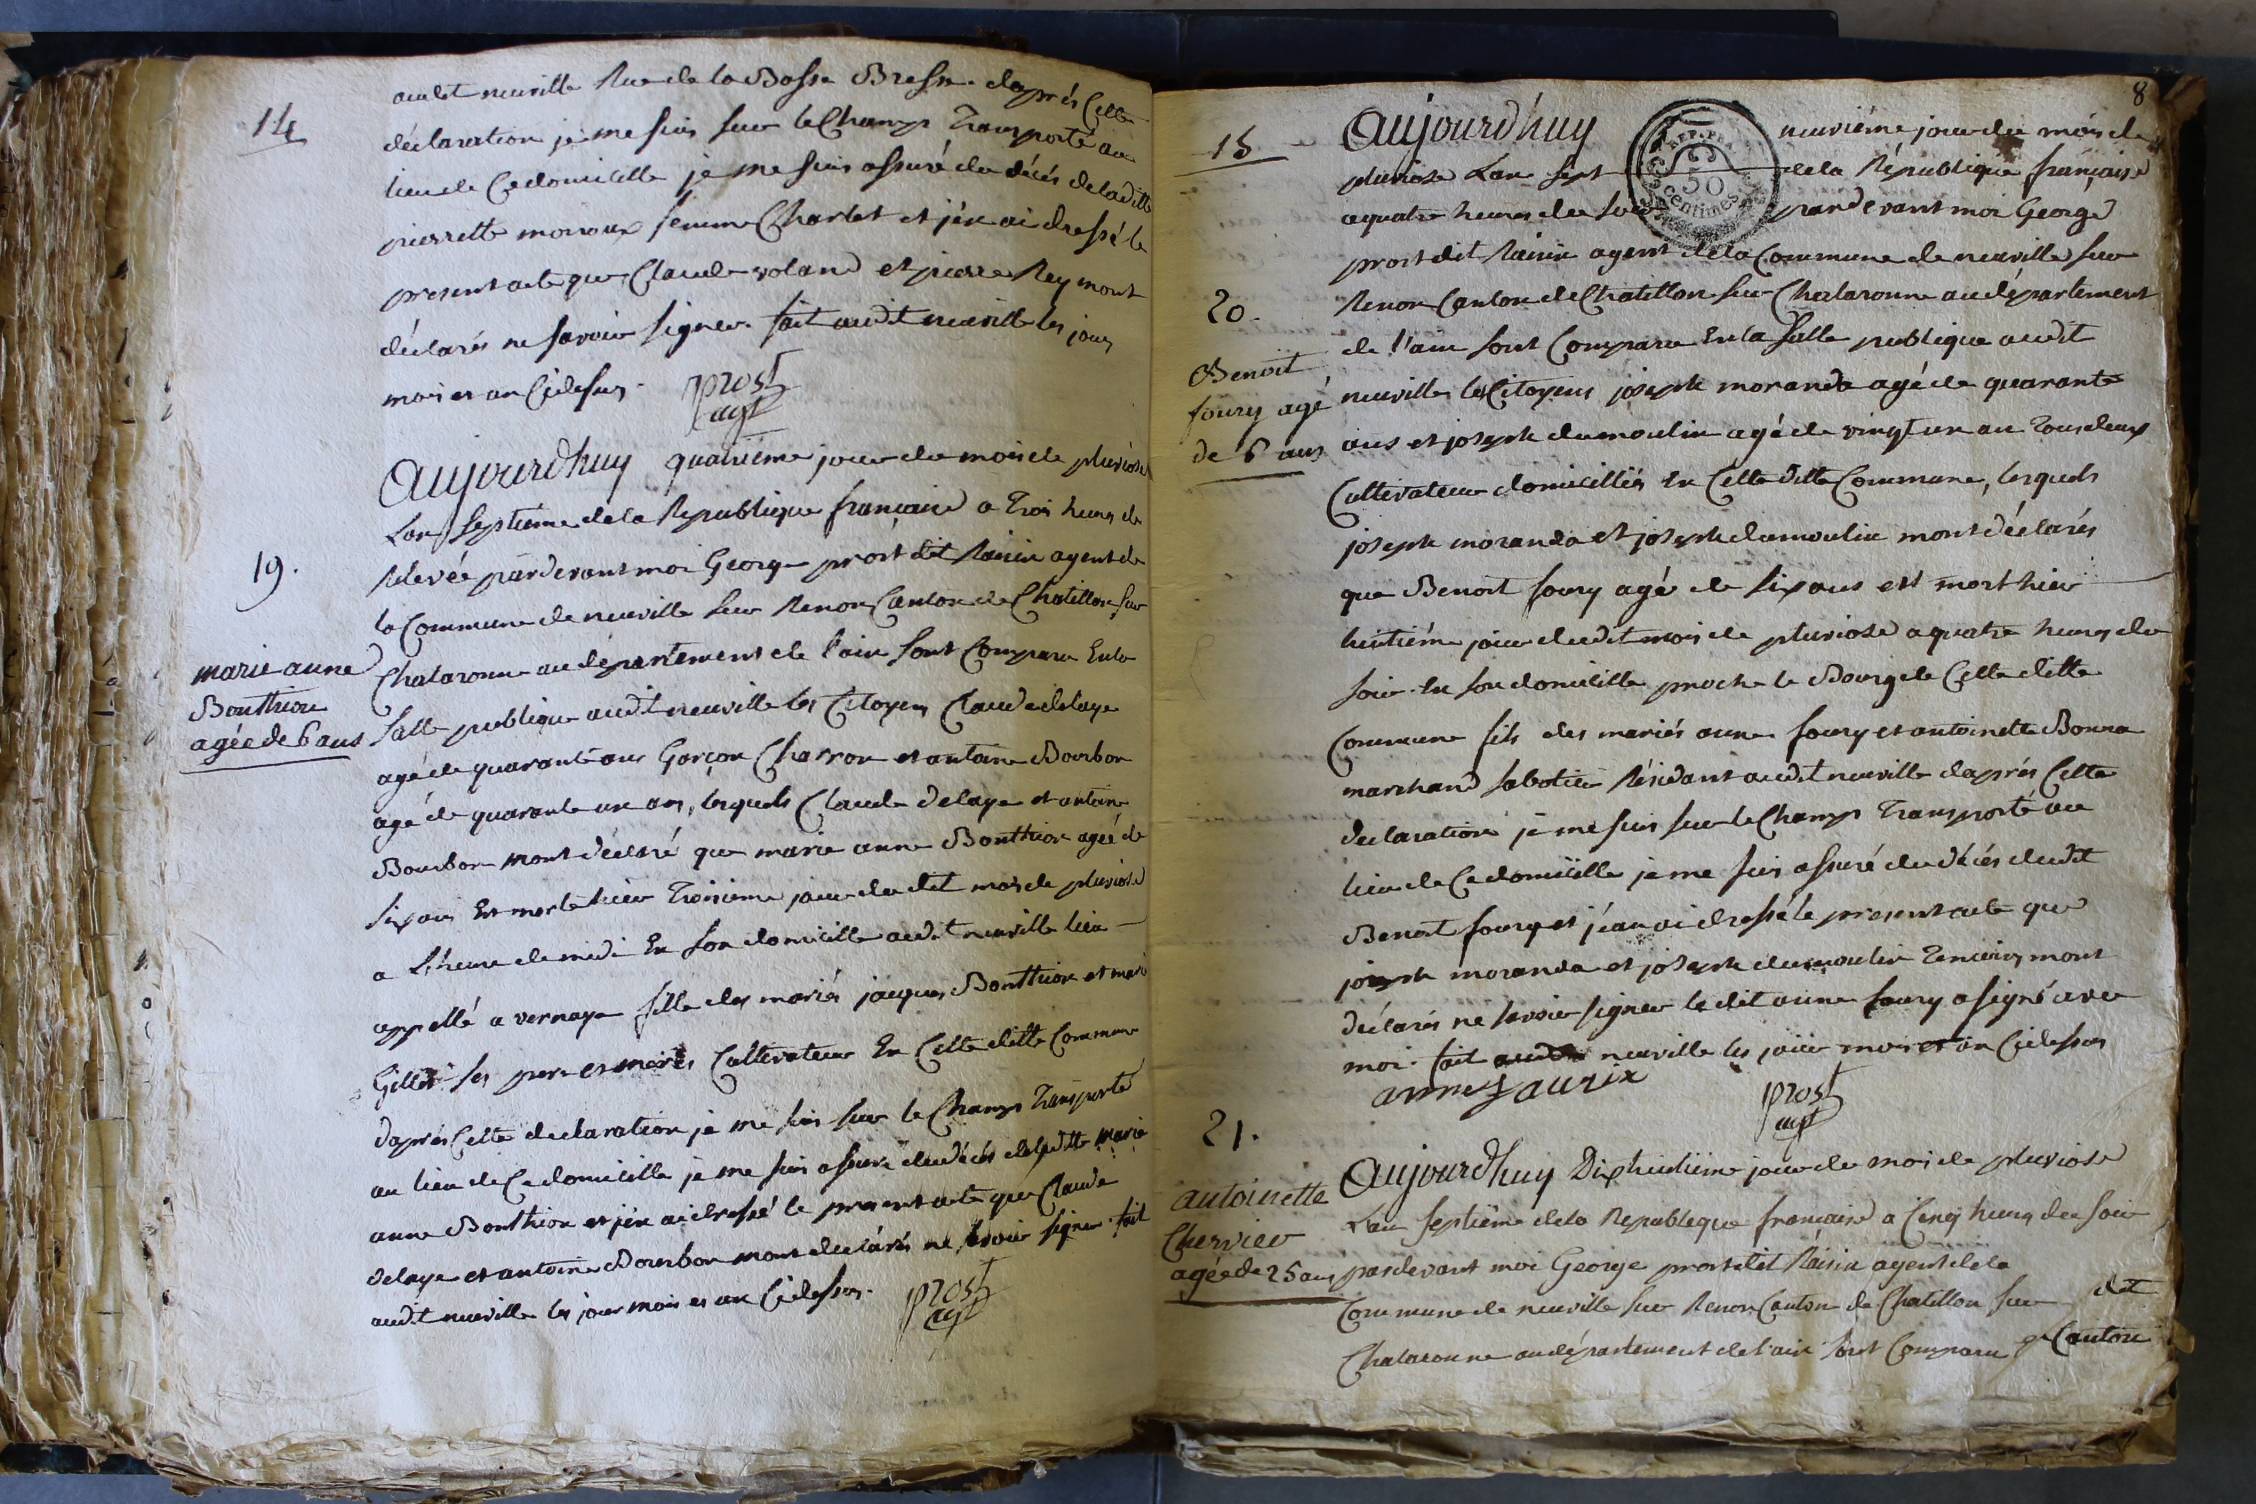 14
audit neuville Rue de la Basse Bresse. daprés Cette
déclaration je me suis sur le Champs Transporté au
lieu de Ce domicille je me suis assuré du décés de ladite
pierrette moiroux femme Charlet et jén ai dressé le
present acte que Claude voland et pierre Reymont
déclarés ne savoir signer. fait audit neuville les jour
mois et an Cidessus.
prost
agt
19.
marie anne
Bonthion
agée de 6 ans
Aujourdhuy quatrieme jour du mois de pluviose
Lan septieme de la Republique française a Trois heures de
Relevée pardevant moi George prost dit Raisin agent de
la Commune de neuville sur Renon Canton de Chatillon sur
Chalaronne au département de l'ain sont Comparu En la
salle publique audit neuville les Citoyens Claude delaye
agé de quarante ans Garçon Charron et antoine Bourbon
agé de quarante un ans, lesquels Claude delaye et antoine
Bourbon mont déclaré que marie anne Bonthion agée de
six ans Est morte hier Troisieme jour du dit mois de pluviose
a L'heure de midi En son domicille audit neuville lieu
appellé a vernaye fille des mariés jacques Bonthion et marie
Gillet ses pere et meres Cultivateur En Cette ditte Commune
daprés Cette declaration je me suis sur le Champs Transporté
au lieu de Ce domicille je me suis assuré du décés de laditte marie
anne Bonthion et jén ai dressé le present acte que Claude
delaye et antoine Bourbon mont declarés ne savoir signer. fait
audit neuville les jour mois et an Cidessus.
prost
agt
8
15
REP. FRA.
50
centimes
Aujourdhuy neuviéme jour du mois de
pluviose Lan sept de la République française
a quatre heures du soir pardevant moi George
prost dit Raisin agent de la Commune de neuville sur
Renon Canton de Chatillon sur Chalaronne au département
de l'ain sont Comparu En la salle publique audit
20.
Benoit
foury agé
de 6 ans
neuville les Citoyens joseph moranda agé de quarante
ans et joseph dumoulin agé de vingt un an Tous deux
Cultivateur domicilliés En Cette ditte Commune, lesquels
joseph moranda et joseph dumoulin mont déclarés
que Benoit foury agé de six ans est mort hier
huitiéme jour dudit mois de pluviose a quatre heures du
soir En son domicille proche le Bourg de Cette ditte
Commune fils des mariés anne foury et antoinette Bonna
marchand sabotier Résidant audit neuville daprés Cette
declaration je me suis sur le Champs Transporté au
lieu de Ce domicille je me suis assuré du décés dudit
Benoit foury et jén ai dressé le present acte que
joseph moranda et joseph dumoulin Temoins mont
déclarés ne savoir signer le dit anne foury a signé avec
moi. fait audit neuville les jour mois et an Cidessus
anne faurix
prost
agt
21.
antoinette
Chervier
agée de 25 ans
Aujourdhuy Dixhuitiéme jour du mois de pluviose
Lan septiéme de la Republique française a Cinq heures du soir
pardevant moi George prost dit Raisin agent de la
Commune de neuville sur Renon Canton de Chatillon sur dit
Chalaronne au département de l'ain sont Comparu Canton